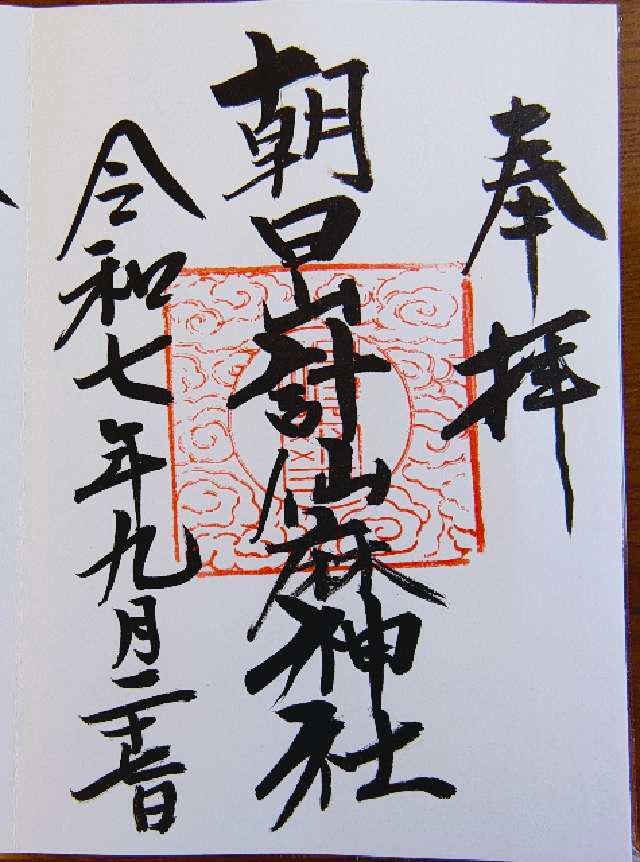 奉拝
朝日山計仙麻神社
令和七年九月二十七日